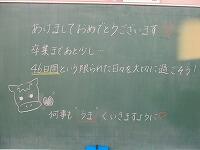 あけましておめでとうございます
卒業まであと少し…
46日間という限られた日々を大切に過ごそう!
何事も"うま"くいきますように♡